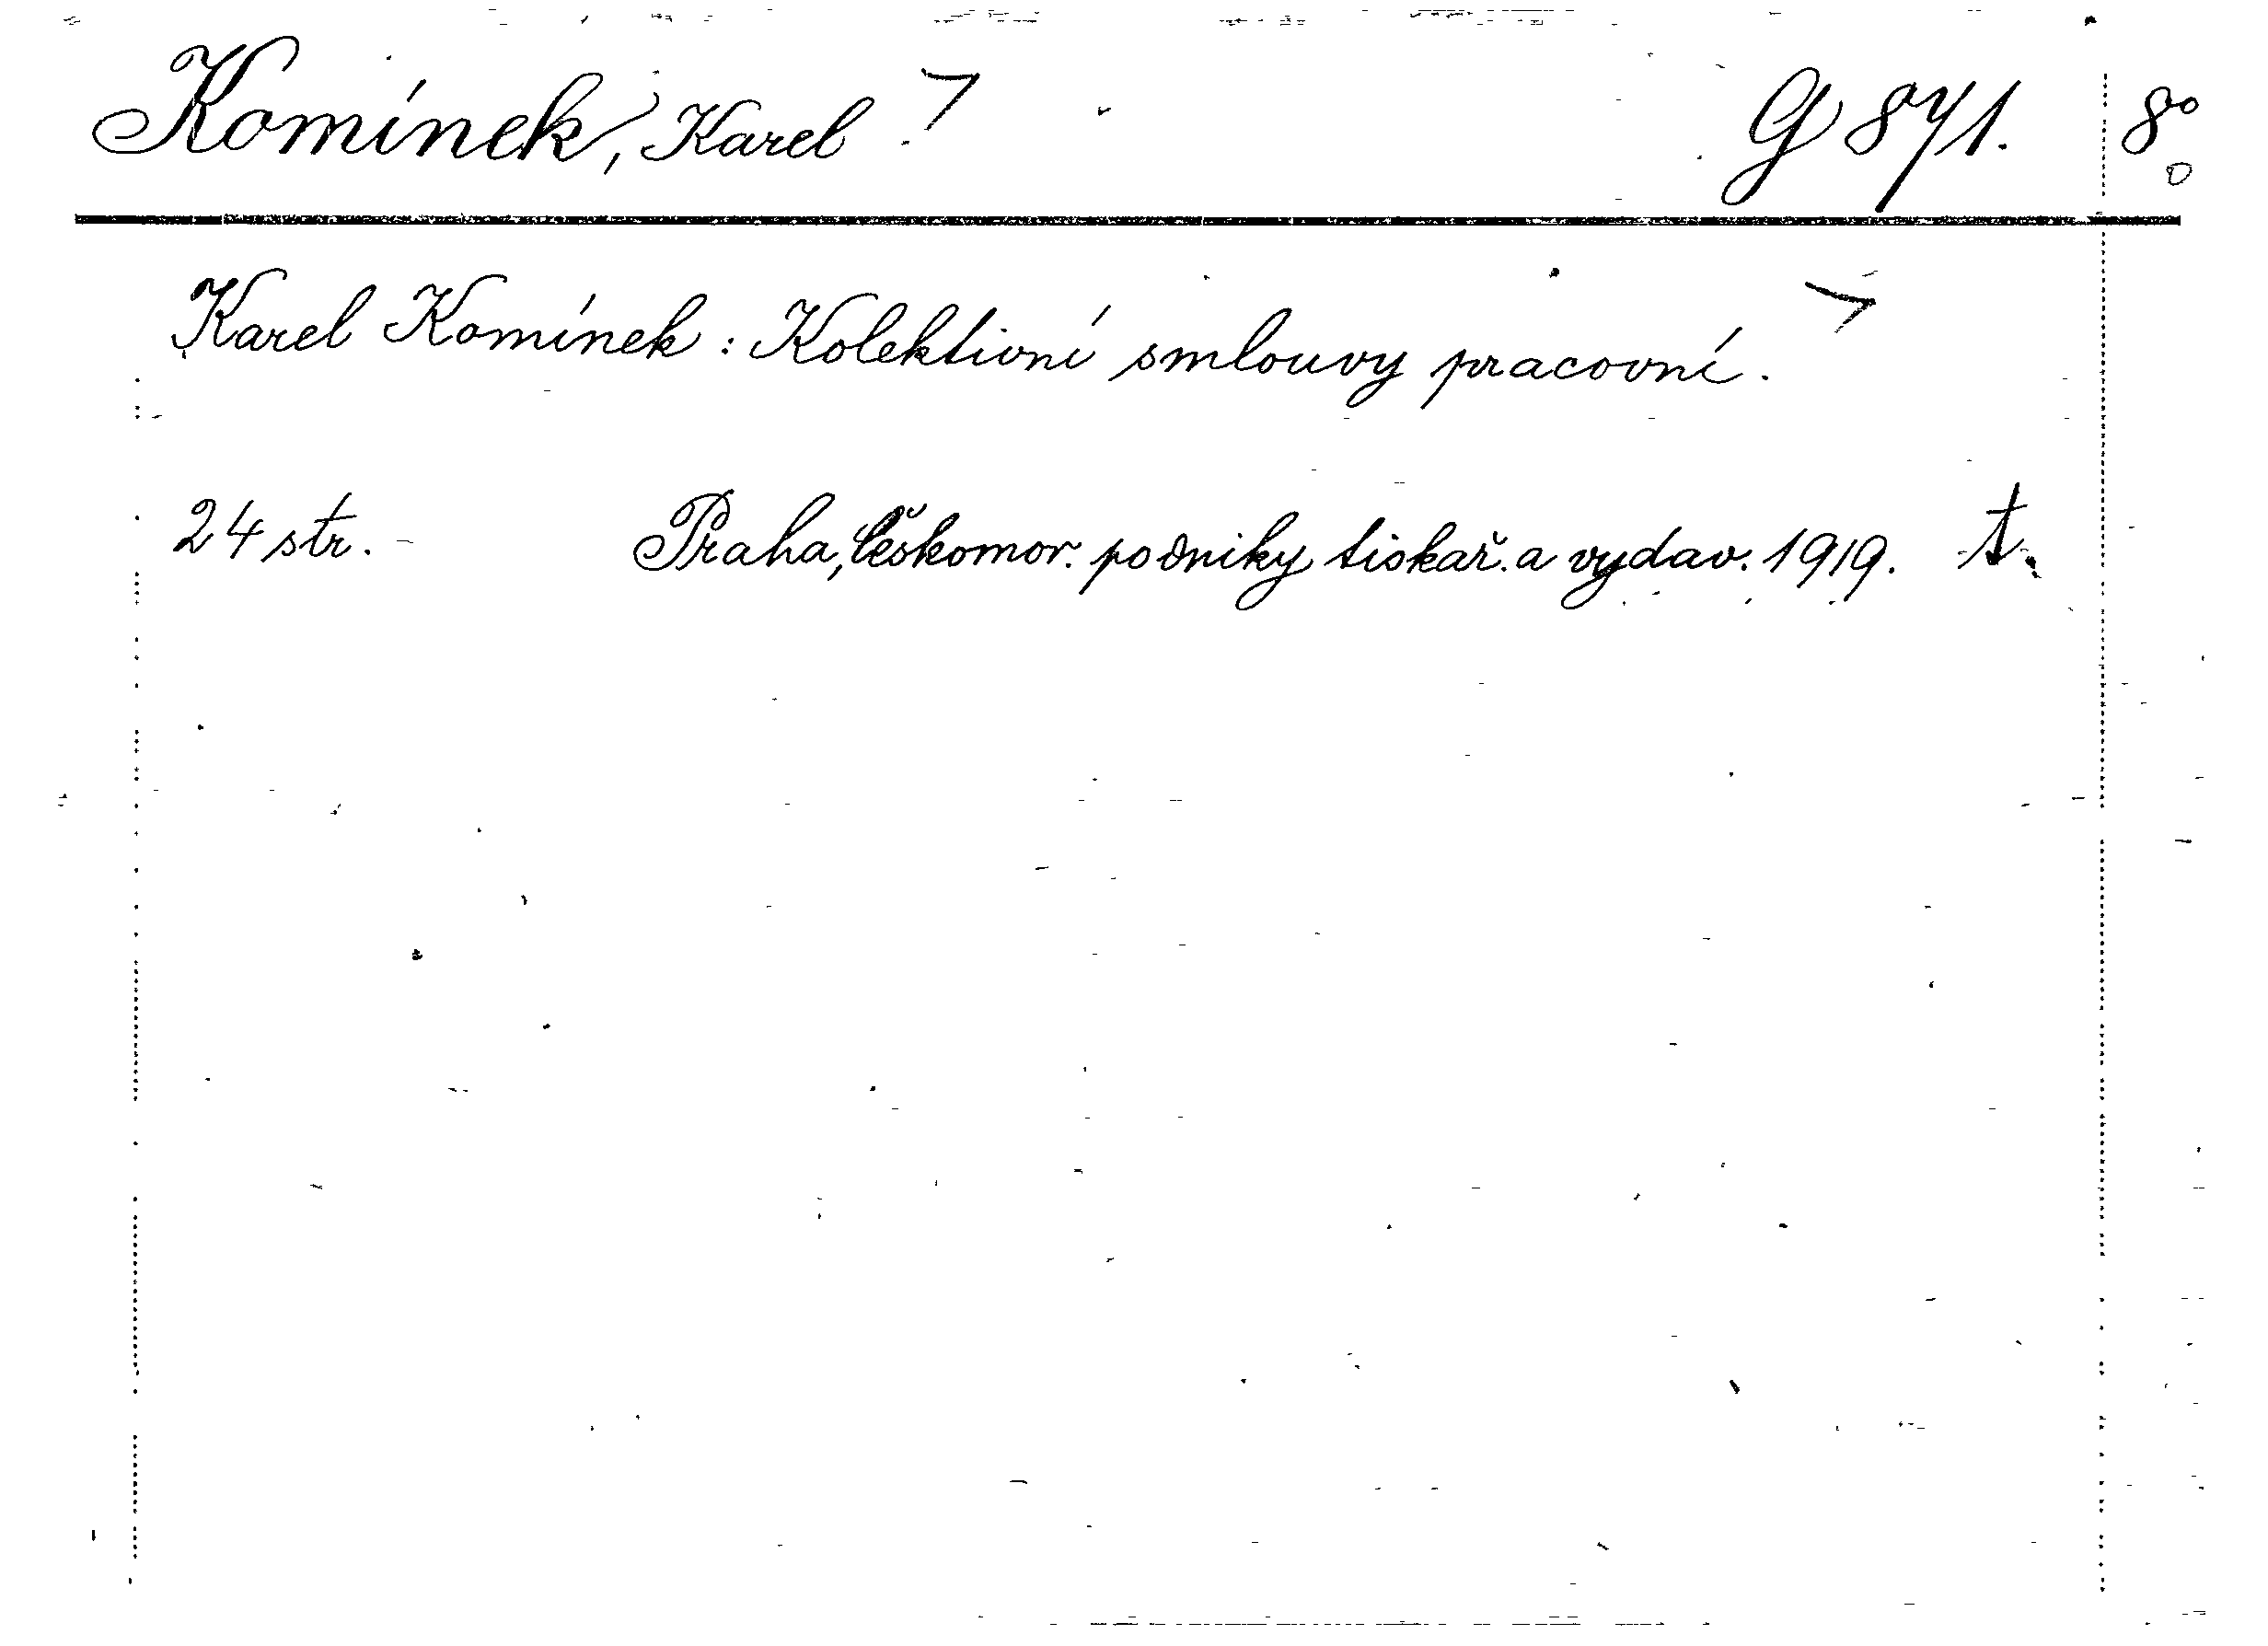 Komínek, Karel G 871. 8°
Karel Komínek: Kolektivní smlouvy pracovní.
24 str. - Praha, Českomor. podniky tiskař. a vydav. 1919. t.